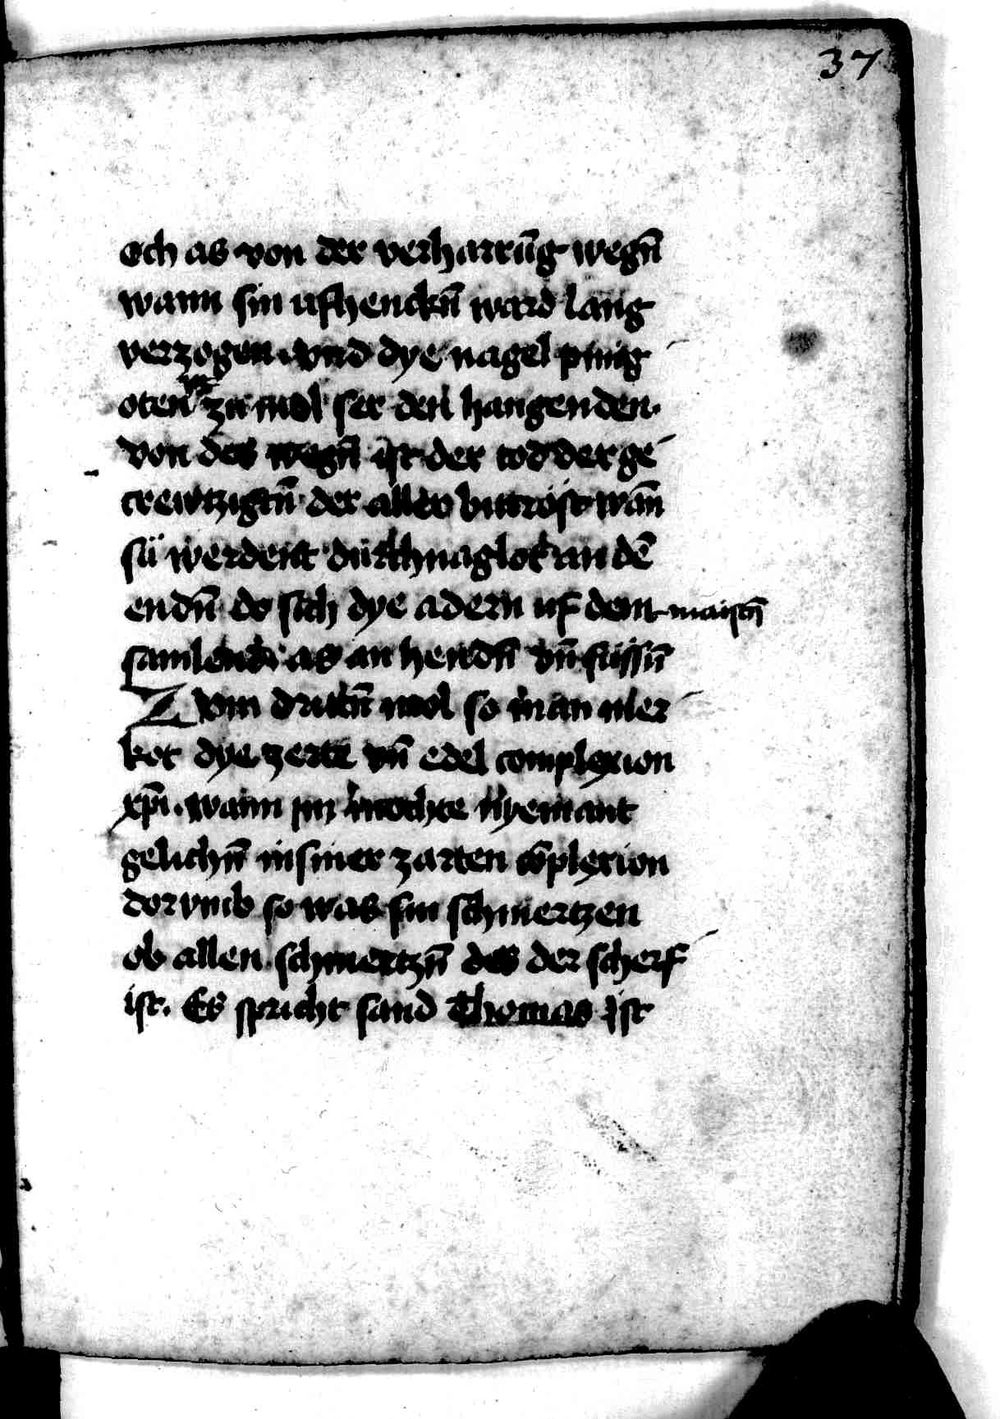 37
och as von der verharrūg wegn̄
wann sin ufhenckn̄ ward lang
verzogen vnd dye nagel pinig
oten zu mol ser den hangenden.
von des wegn̄ ist der tod der ge
crewtzigtn̄ der aller bittröst wan̄
sü werdent durchnaglot an dē
endn̄ do sich dye adern uf dem maistn̄
samlent as an hendn̄ vn̄ füssn̄
Zvm drittn̄ mol so man mer
kot dye zerte vn̄ edel complexion
xp̄i. wann im mochte nyemant
gelichn̄ in siner zarten cōplexion
dorvmb so was sin schmertzen
ob allen schmertzn̄ des der scherf
ist. Es spricht sand Thomas ist